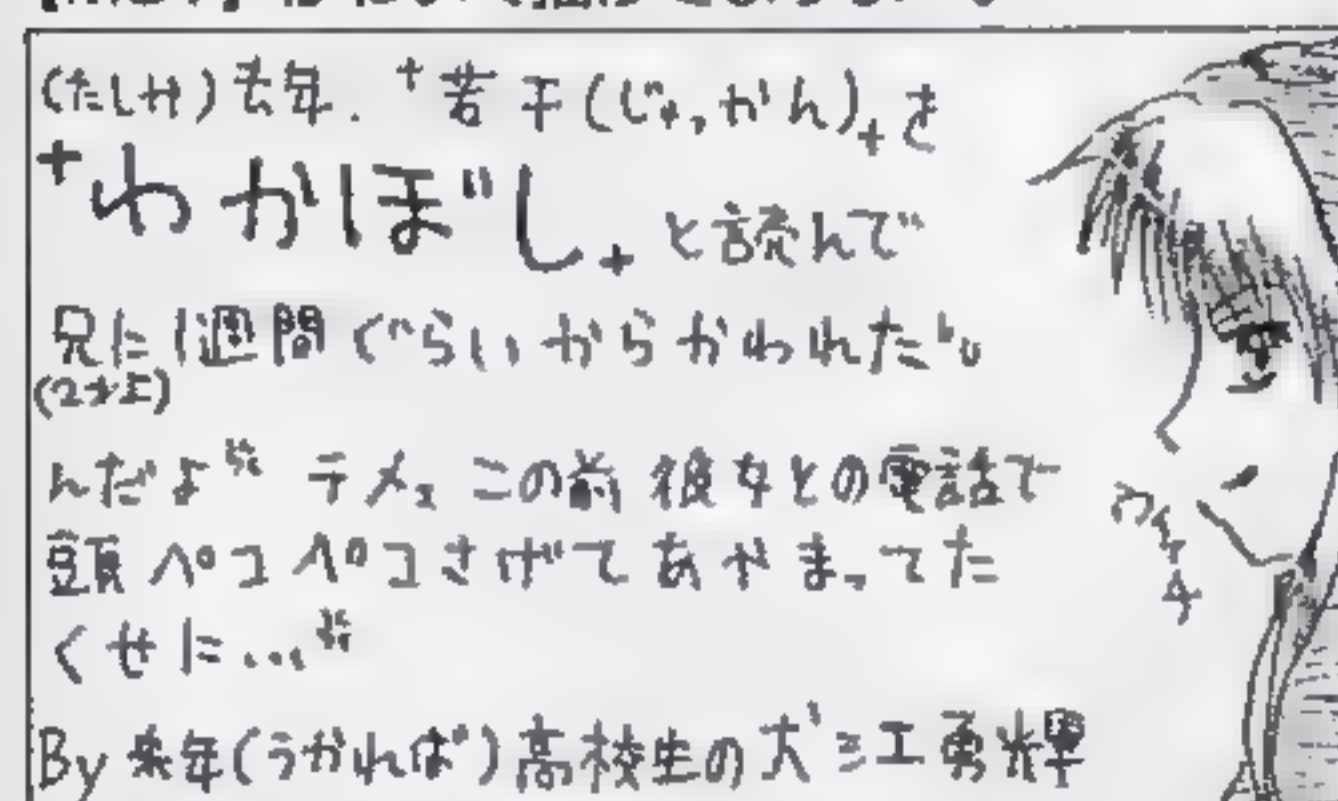 (たしか)去年. "若干(じゃっかん)"を
"わかぼし"と読んで
兄に1週間ぐらいからかわれた
(2才上)
んだよ テメェこの前彼女との電話で
頭ペコペコさげてあやまってた
くせに...
By 来年(うかれば)高校生の犬 工勇輝